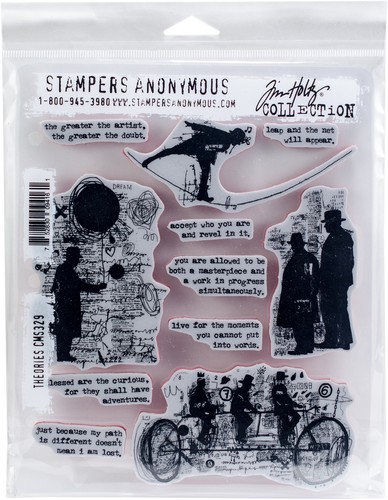 STAMPERS ANONYMOUS
1-800-945-3980 WWW.STAMPERSANONYMOUS.COM
Tim Holtz
COLLECTION
the greater the artist,
the greater the doubt.
leap and the net
will appear.
DREAM
accept who you are
and revel in it.
you are allowed to be
both a masterpiece and
a work in progress
simultaneously.
live for the moments
you cannot put
into words.
THEORIES CMS329
lessed are the curious,
for they shall have
adventures.
just because my path
is different doesn't
mean i am lost.
7
6
8